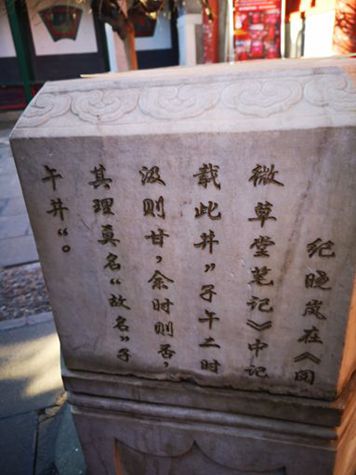 纪晓岚在《阅
微草堂笔记》中记
载此井“子午二时
汲则甘，余时则否，
其理莫名“故名”子
午井”。